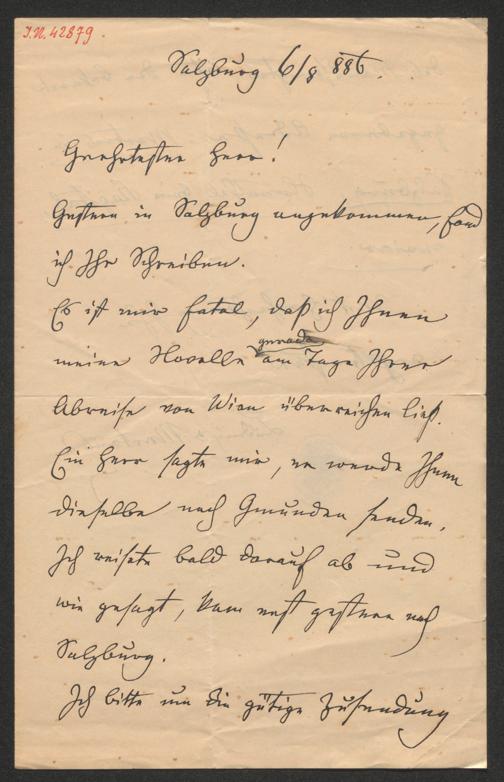 I.N. 42879.
Salzburg 6/8 886.
Geehrtester Herr!
Gestern in Salzburg angekommen, fand
ich Ihr Schreiben.
Es ist mir fatal, daß ich Ihnen
gerade
meine Novelle am Tage Ihrer
Abreise von Wien überreichen ließ.
Ein Herr sagte mir, er werde Ihnen
dieselbe nach Gmunden senden.
Ich reiste bald darauf ab und
wie gesagt, kam erst gestern nach
Salzburg.
Ich bitte um die gütige Zusendung